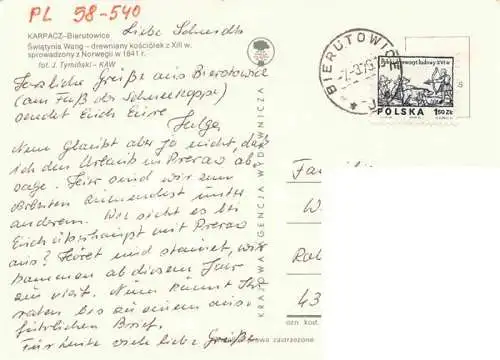 PL 58-540
KARPACZ-Bierutowice
Świątynia Wang - drewniany kościółek z XIII w.
sprowadzony z Norwegii w 1841 r.
fot. J. Tymiński - KAW
Liebe
Herzliche Grüße aus Bierutowice
(am Fuß der Schneekoppe)
sendet Euch Eure
Helga
Nun glaubt aber ja nicht, daß
ich den Urlaub in Prerow ab
sage. Hier sind wir zum
unter
anderem. Wie sieht es bei
Euch überhaupt mit Prerow
aus? Hört und staunet, wir
kommen ab diesem Jahr
zu viert. Nun könnt Ihr
raten bis zu einem aus-
führlichen Brief.
Für heute viele liebe Grüße
KRAJOWA AGENCJA WYDAWNICZA
BIERUTOWICE
POLSKA 1,50 ZŁ
Fam
W
Ra
43